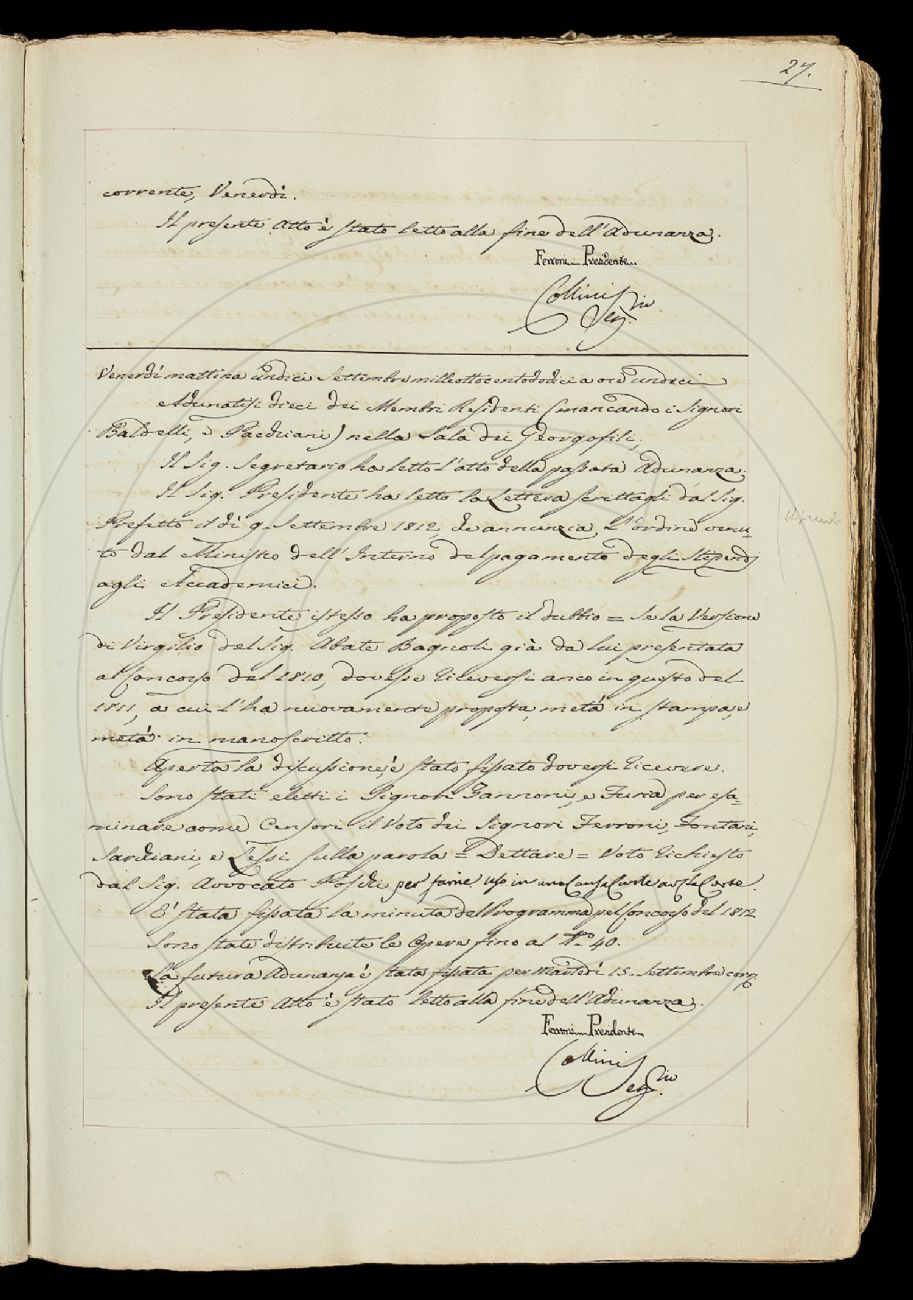 27.
corrente, Venerdì.
Il presente Atto è stato letto alla fine dell'Adunanza.
Ferroni Presidente
Collini Seg.rio
Venerdì mattina undici Settembre milleottocentododici a ore undici
Adunatisi dieci dei Membri Residenti (mancando i Signori
Baldelli, e Pacchiani) nella Sala dei Georgofili,
Il Sig. Segretario ha letto l'atto della passata Adunanza.
Il Sig. Presidente ha letto la Lettera scrittagli dal Sig.
Prefetto il dì 9. Settembre 1812, che annunzia l'ordine venu-
to dal Ministro dell'Interno del pagamento degli Stipendj
agli Accademici.
Il Presidente istesso ha proposto il dubbio = se la Versione
di Virgilio del Sig. Abate Bagnoli già da lui presentata
al Concorso del 1810, dovesse riceversi anco in questo del
1811, a cui l'ha nuovamente proposta, metà in stampa, e
metà in manoscritto.
Aperta la discussione, è stato fissato doversi ricevere.
Sono stati eletti i Signori Zannoni, e Furia per esa-
minare come Censori il Voto dei Signori Ferroni, Fontani,
Sarchiani, e Lessi sulla parola = Dettare = Voto richiesto
dal Sig. Avvocato per farne uso in una Causa
E' stata fissata la minuta del Programma pel Concorso del 1812
Sono state distribuite le Opere fino al N.o 40.
La futura Adunanza è stata fissata per Martedì 15. Settembre corr.
Il presente Atto è stato letto alla fine dell'Adunanza.
Ferroni Presidente
Collini Seg.rio